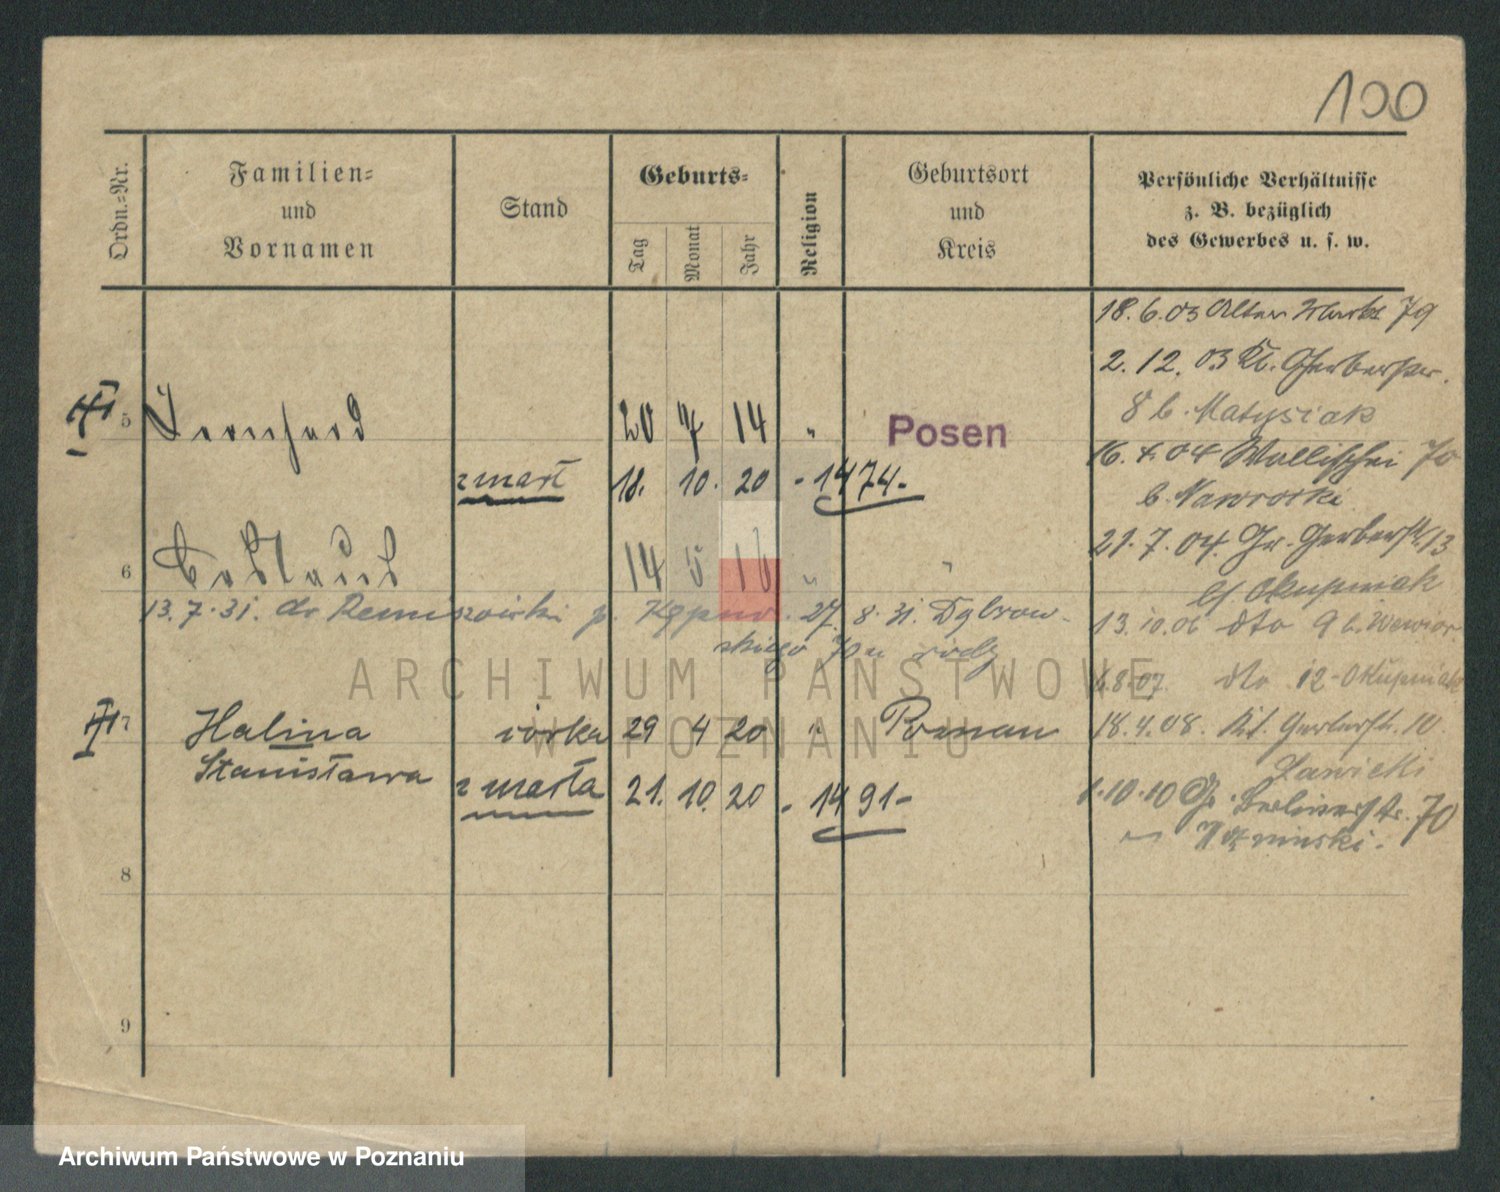 100
Ordn.-Nr.
Familien-
und
Vornamen
Stand
Geburts-
Tag
Monat
Jahr
Religion
Geburtsort
und
Kreis
Persönliche Verhältnisse
z. B. bezüglich
des Gewerbes u. s. w.
18.6.03 Alter Markt 79
2. 12. 03 Kl. Gerberstr.
8 b. Matysiak
5 Bernhard 20 7 14 " Posen
16. 4. 04 Wallischei 70
zmarł 18. 10. 20 - 1474-
b. Nawrocki
21. 7. 04. Gr. Gerberstr. 13
6 14 5 16 " "
b. Okupniak
13. 7. 31. do p. Kępno. 27. 8. 31. Dąbrow-
skiego 70
13. 10. 06 dto 9 b. Wewior
6.8.07. dto 12 - Okupniak
7 Halina córka 29 4 20 " Poznan
18. 4. 08. Kl. Gerberstr. 10.
Stanisława
Zawicki
zmarła 21. 10. 20 - 1491-
1.10.10 Gr. Berlinerstr. 70
8
9
ARCHIWUM PAŃSTWOWE
W POZNANIU
Archiwum Państwowe w Poznaniu